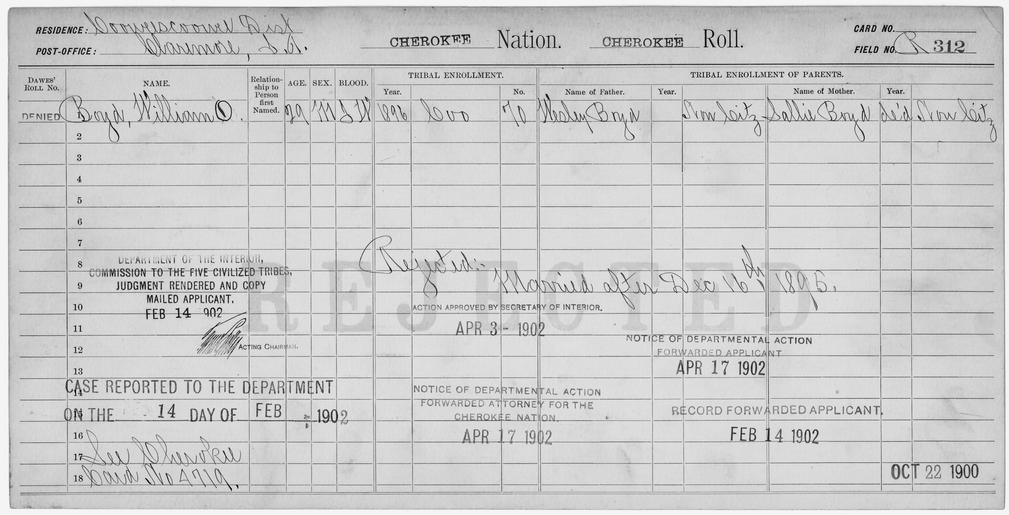 RESIDENCE: Cooweescoowee Dist
POST-OFFICE: Claremore, I.T.
CHEROKEE Nation. CHEROKEE Roll.
CARD NO.
FIELD NO. R 312
DAWES' ROLL NO. NAME. Relationship to Person first Named. AGE. SEX. BLOOD. TRIBAL ENROLLMENT. Year. No. TRIBAL ENROLLMENT OF PARENTS. Name of Father. Year. Name of Mother. Year.
DENIED 1 Boyd, William O. 29 M I W 1896 Coo 70 Wesley Boyd Non Citz Sallie Boyd de'd Non Citz
2
3
4
5
6
7
8
9
10
11
12
13
14
15
16
17
18
DEPARTMENT OF THE INTERIOR,
COMMISSION TO THE FIVE CIVILIZED TRIBES,
JUDGMENT RENDERED AND COPY
MAILED APPLICANT.
FEB 14 902
ACTING CHAIRMAN.
REJECTED
Rejected:-
Married after Dec 16th, 1895.
ACTION APPROVED BY SECRETARY OF INTERIOR.
APR 3 - 1902
NOTICE OF DEPARTMENTAL ACTION
FORWARDED APPLICANT
APR 17 1902
CASE REPORTED TO THE DEPARTMENT
ON THE 14 DAY OF FEB 1902
NOTICE OF DEPARTMENTAL ACTION
FORWARDED ATTORNEY FOR THE
CHEROKEE NATION.
APR 17 1902
RECORD FORWARDED APPLICANT.
FEB 14 1902
See Cherokee
Card No 4719.
OCT 22 1900